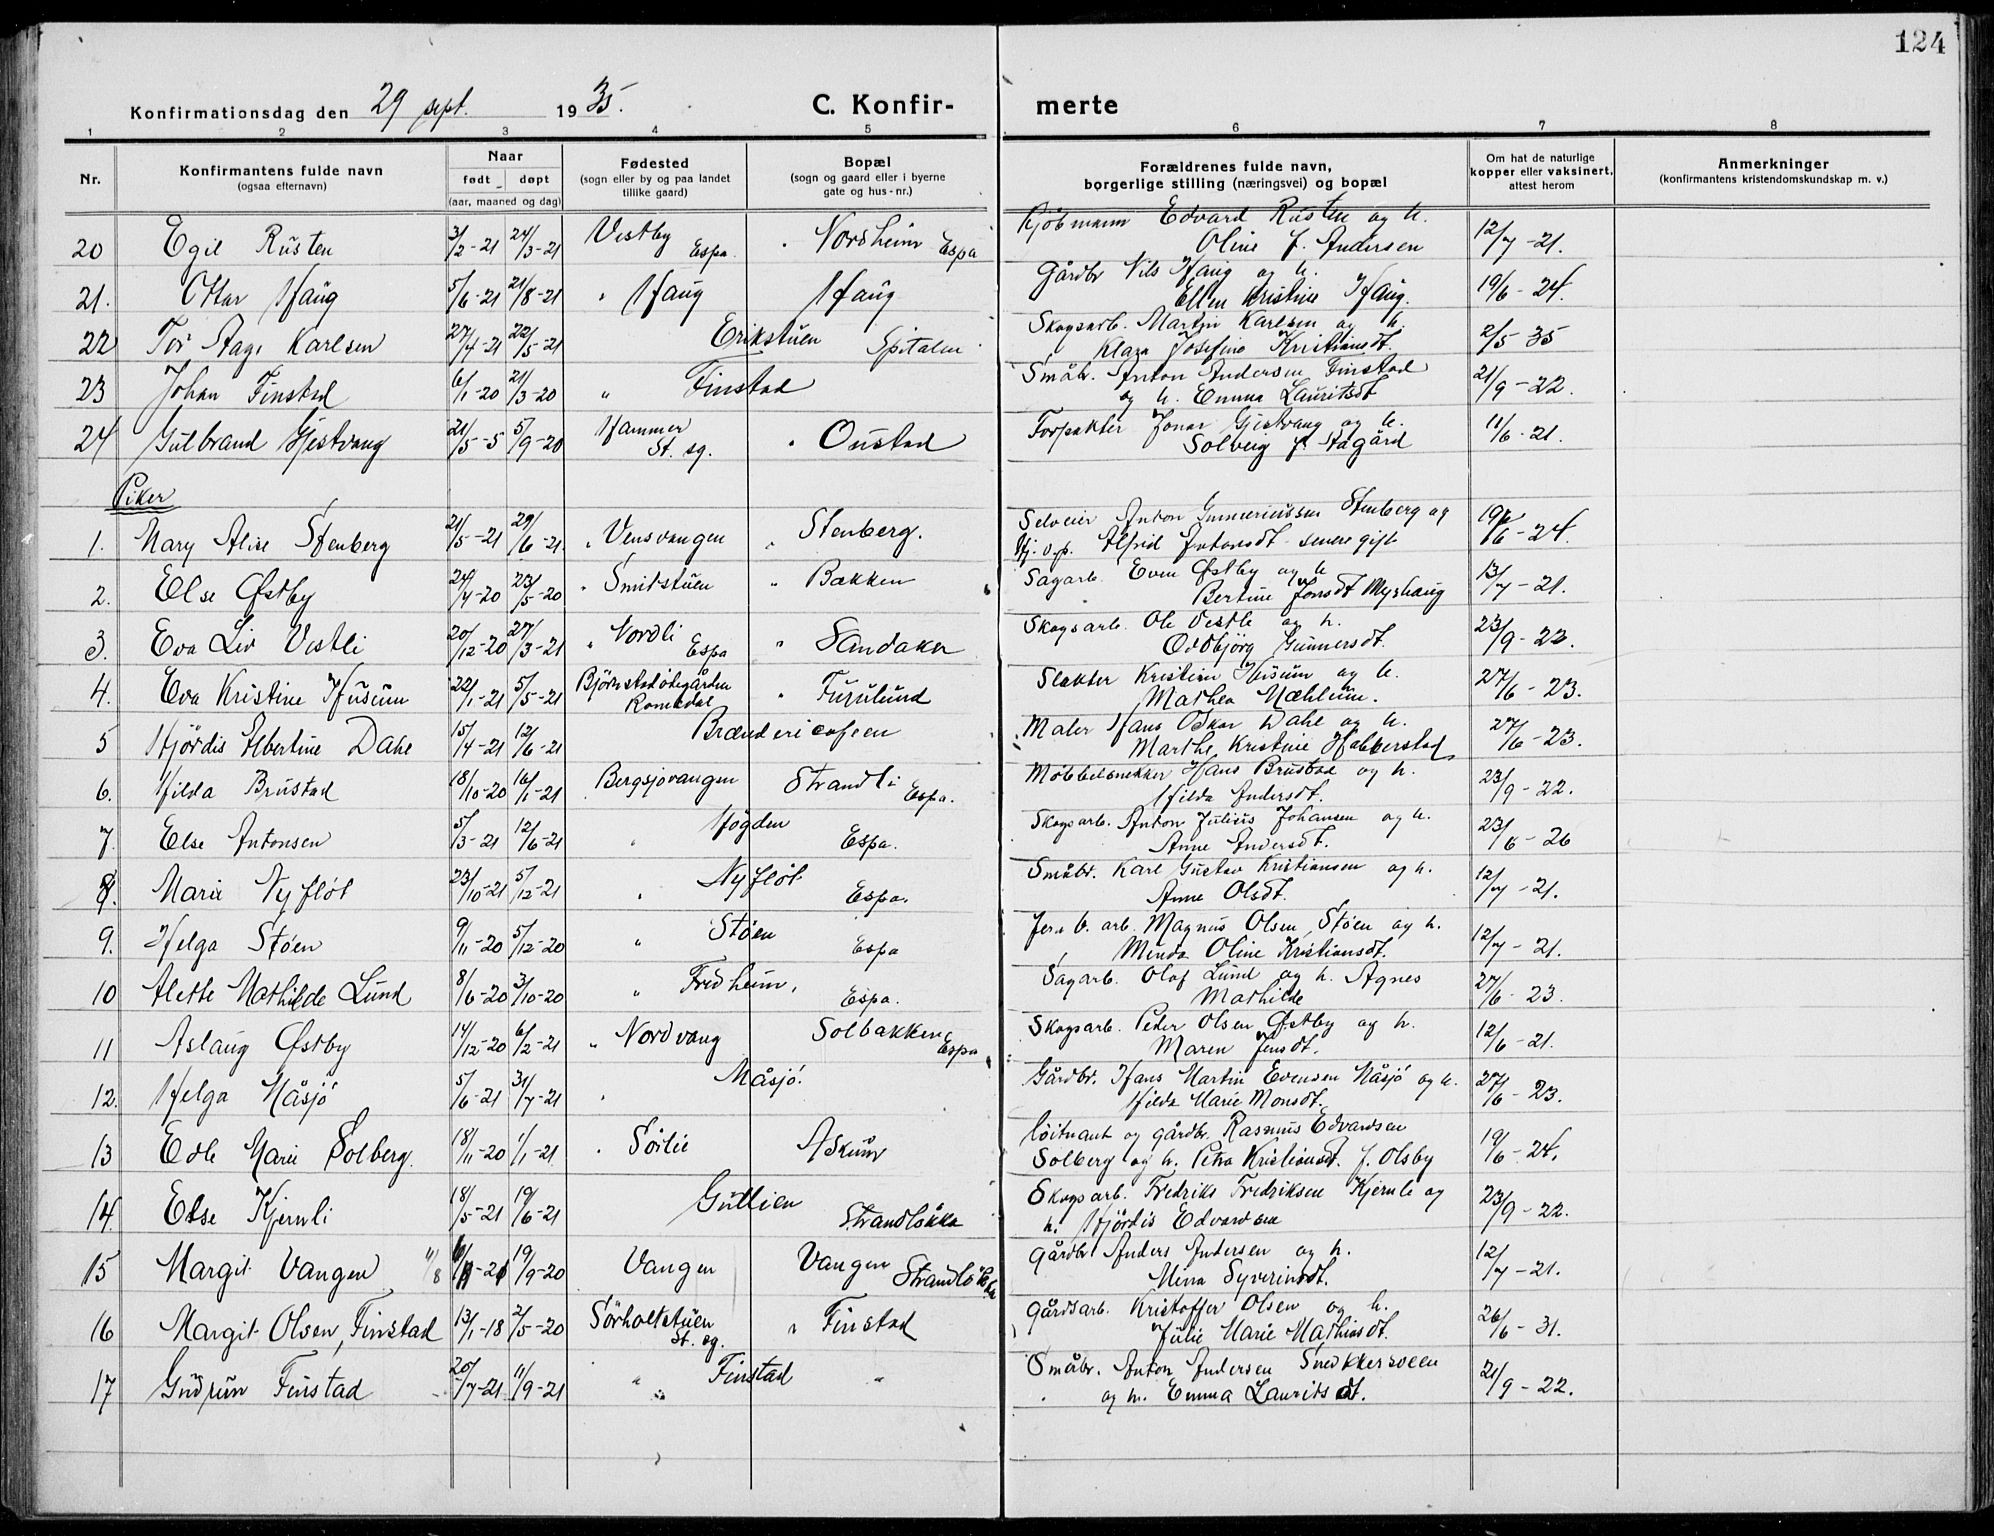 124
Konfirmationsdag den 29 sept. 1935. C. Konfir- merte
1 2 3 4 5 6 7 8
Nr. Konfirmantens fulde navn (ogsaa efternavn) Naar født døpt (aar, maaned og dag) Fødested (sogn eller by og paa landet tillike gaard) Bopæl (sogn og gaard eller i byerne gate og hus-nr.) Forældrenes fulde navn, borgerlige stilling (næringsvei) og bopæl Om hat de naturlige kopper eller vaksinert, attest herom Anmerkninger (konfirmantens kristendomskundskap m. v.)
20 Egil Rusten 3/2-21 24/3-21 Vestby Espa. " Nordheim Espa Kjöbmann Edvard Rusten og h. Oline f. Andersen 12/7-21.
21. Ottar Haug 5/6-21 21/8-21 " Haug Haug Gårdbr Nils Haug og h. Ellen Kristine Haug. 19/6-24.
22 Tor Aage Karlsen 27/4-21 22/5-21 Erikstuen Spitalen Skogsarb. Martin Karlsen og h. Klara Josefine Kristiansdt. 2/5-35
23 Johan Finstad 6/1-20 21/3-20 " Finstad Småbr. Anton Andersen Finstad og h. Emma Lauritsdt 21/9-22.
24 Gulbrand Gjestvang 21/5-5 5/9-20 Hammer St. sg. " Oustad Forpakter Jonar Gjestvang og h. Solveig f. Aagård 11/6-21.
Piker
1. Mary Alise Stenberg 21/5-21 29/6-21. " Vensvangen " Stenberg. Selveier Anton Gunneriussen Stenberg og Hj. v. p. Alfrid Antonsdt senere gift 19/6-24.
2. Else Østby 24/4-20 23/5-20 " Smidstuen " Bakken Sagarb. Even Østby og h Bertine Jonsdt Myrhaug 13/7-21.
3. Eva Liv Vestli 20/12-20 27/3-21 " Nordli Espa " Sandaker Skogsarb. Ole Vestle og h. Oddbjörg Gunnersdt. 23/9-22.
4. Eva Kristine Husum 22/1-21 5/5-21 Björnstadödegården Romedal " Furulund Slakter Kristian Husum og h. Mathea Mæhlum. 27/6-23.
5 Hjördis Albertine Dahl 15/4-21 12/6-21 Brændericafeen Maler Hans Oskar Dahl og h. Marthe Kristine Habberstad 27/6-23.
6. Hilda Brustad 18/10-20 16/1-21 Bergsjovangen Strandli Espa. Möbbelsnekker Hans Brustad og h. Hilda Andersdt. 23/9-22.
7. Else Antonsen 5/3-21 12/6-21 " Högden Espa. Skogsarb. Anton Julius Johansen og h. Anne Andersdt. 23/6-26
8. Marie Nyflöt 23/10-21 5/12-21 " Nyflöt Espa. Småbr. Karl Gustav Kristiansen og h. Anne Olsdt. 12/7-21.
9. Helga Stöen 9/11-20 5/12-20 " Stöen Espa Jern b. arb. Magnus Olsen, Stöen og h. Minda Oline Kristiansdt. 12/7-21.
10 Alette Mathilde Lund 8/6-20 3/10-20 " Fredheim, Espa. Sagarb. Olaf Lund og h. Agnes Mathilde 27/6-23.
11 Aslaug Østby 14/12-20 6/2-21 " Nordvang Solbakken Espa Skogsarb. Peder Olsen Østby og h. Maren Jensdt. 12/6-21.
12. Helga Måsjö 5/6-21 31/7-21 " Måsjö. Gårdbr. Hans Martin Evensen Måsjö og h. Hilda Marie Monsdt. 27/6-23.
13 Edle Marie Solberg. 18/11-20 1/1-21 " Sörlie Askum Löitnant og gårdbr. Rasmus Edvardsen Solberg og h. Petra Kristiansdt. f. Olsby 19/6-24.
14. Else Kjernli 18/5-21 19/6-21 Gullien Strandlökka Skogsarb. Fredrik Fredriksen Kjernle og h. Hjördis Edvardsen 23/9-22.
15 Margit Vangen 11/8 19/9-20 Vangen Vangen Strandlökka Gårdbr Anders Andersen og h. Mina Syverinsdt. 12/7-21.
16 Margit Olsen, Finstad 13/1-18 2/5-20 Sörholtstuen St. sg. " Finstad Gårdsarb. Kristoffer Olsen og h. Julie Marie Mathisdt. 26/6-31.
17 Gudrun Finstad 20/7-21 11/9-21 " Finstad " Småbr. Anton Andersen Snekkersveen og h. Emma Lauritsdt. 21/9-22.